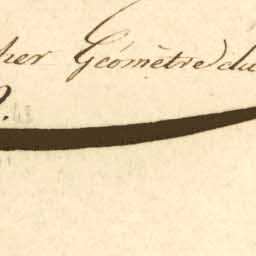 her Géomètre du